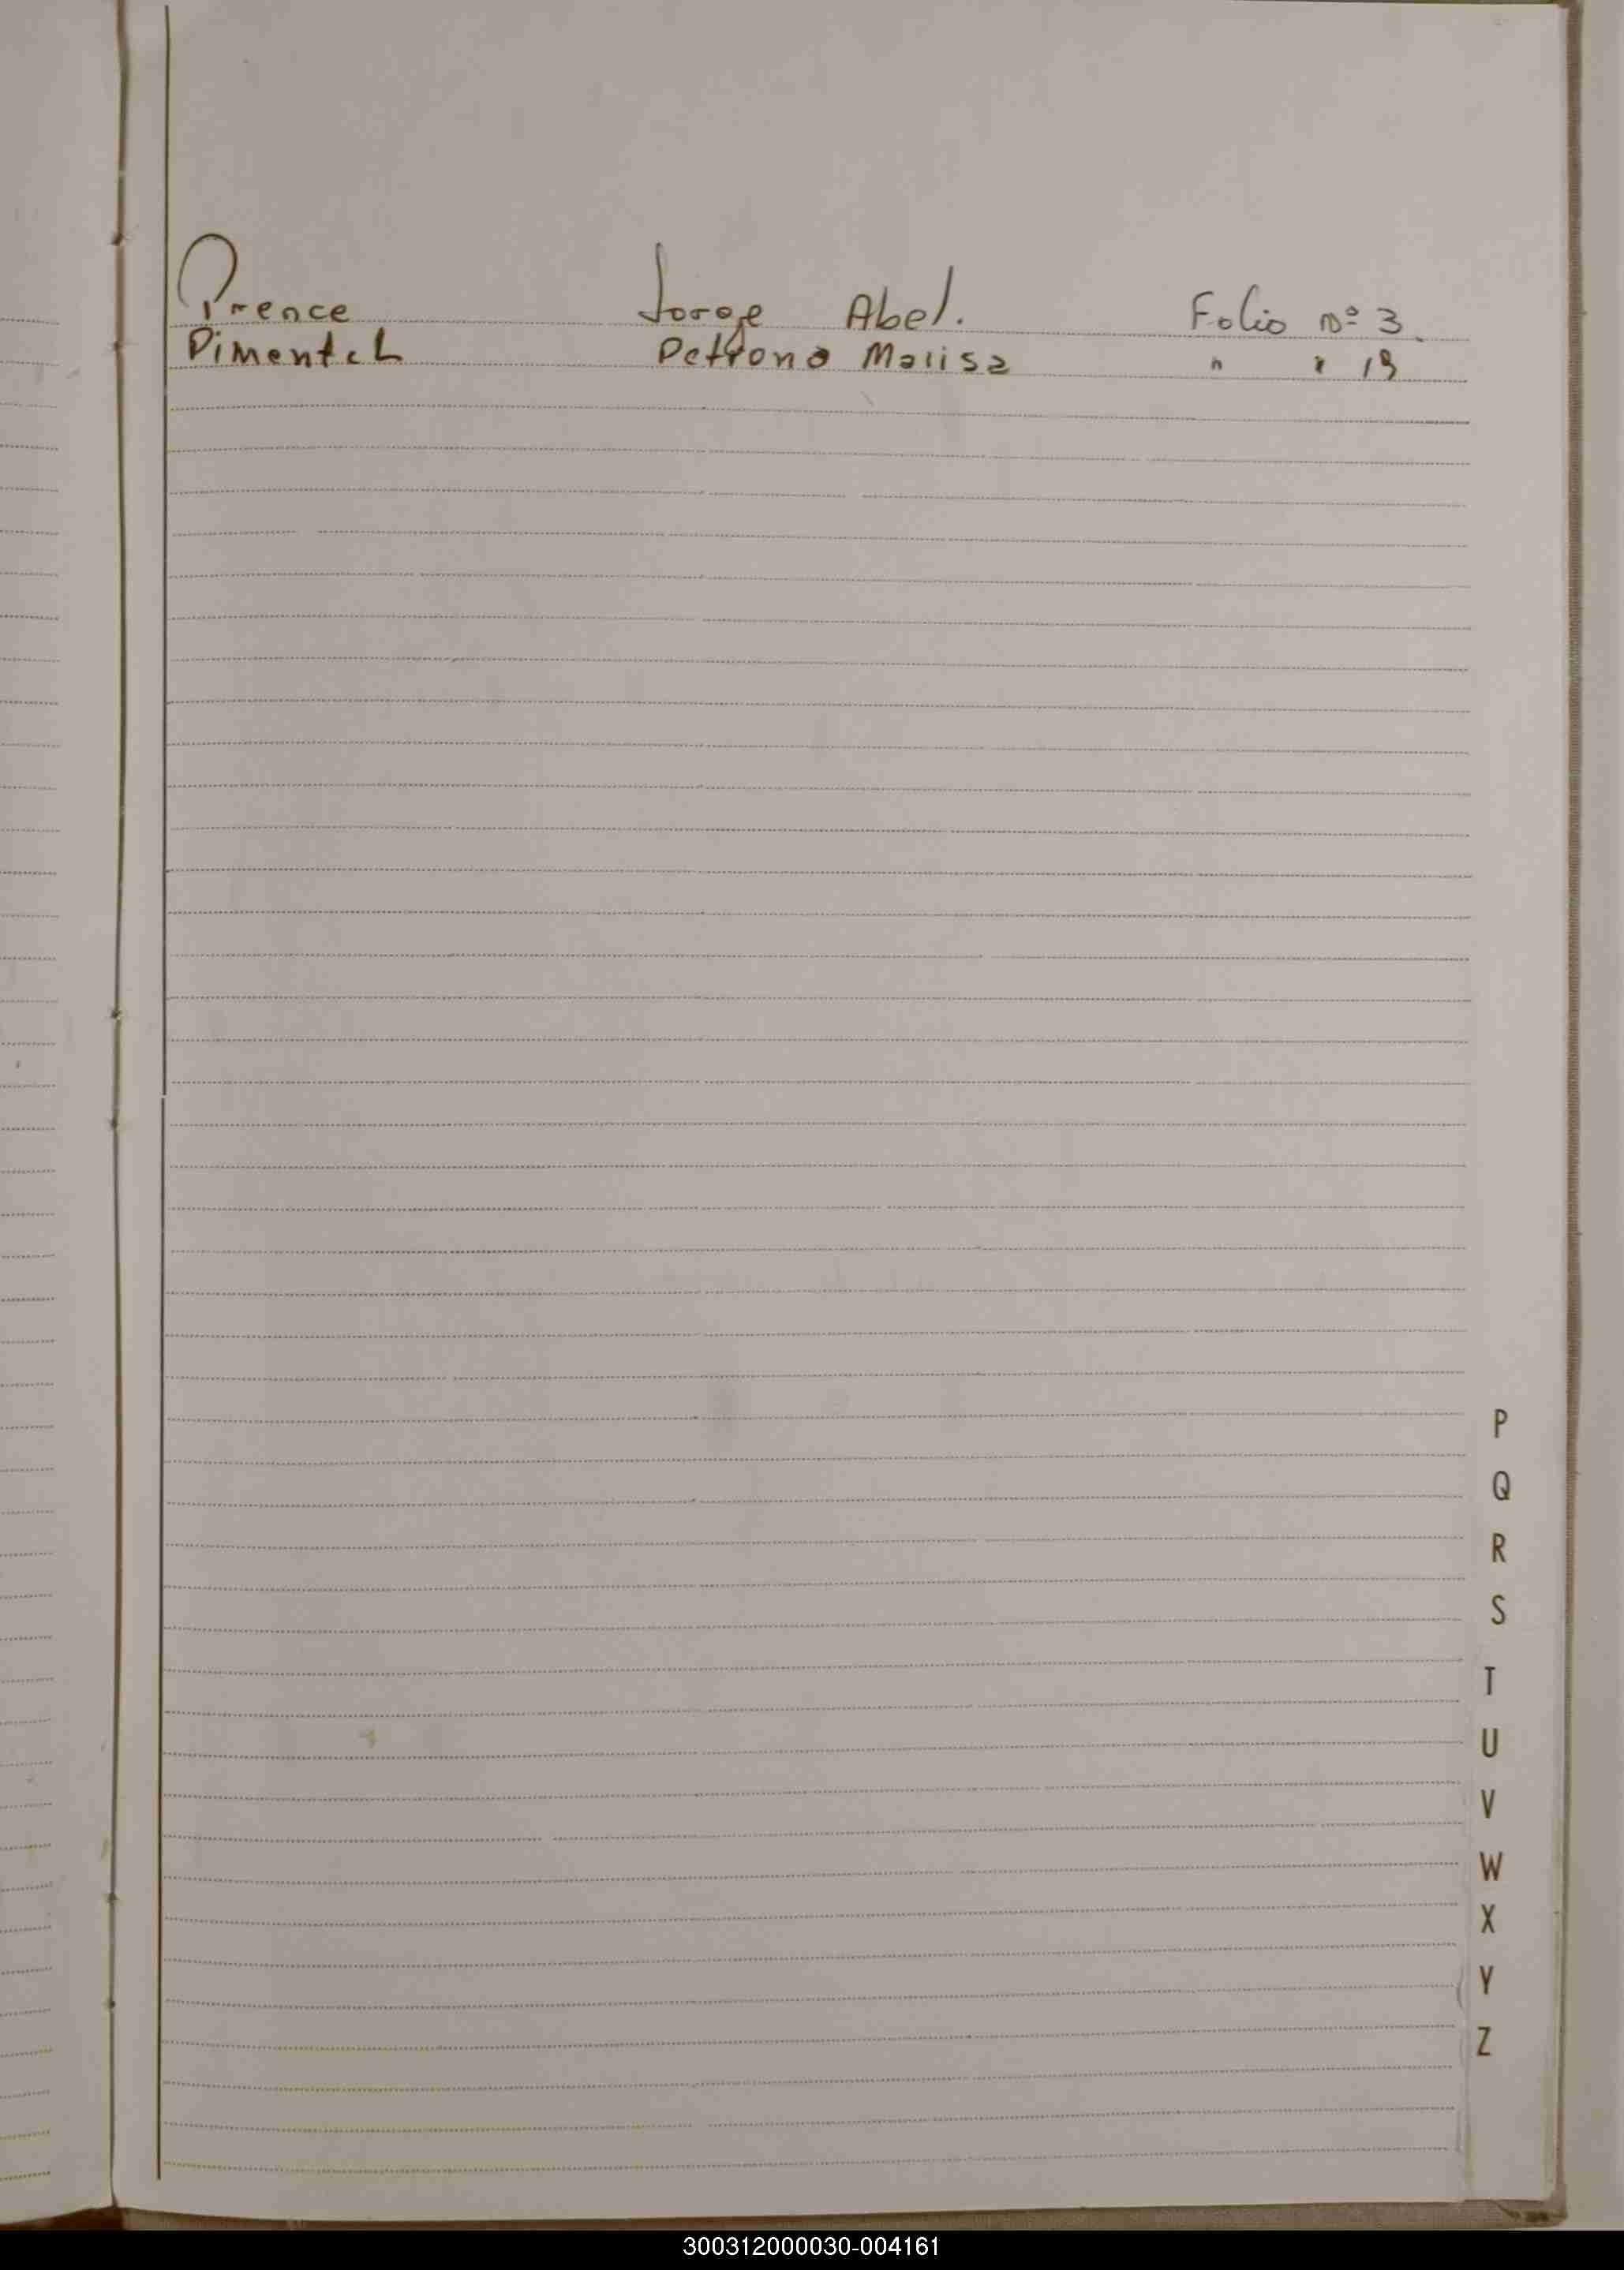 Prence Jorge Abel. Folio Nº 3
Pimentel Petrona Marisa " " 19
P
Q
R
S
T
U
V
W
X
Y
Z
300312000030-004161